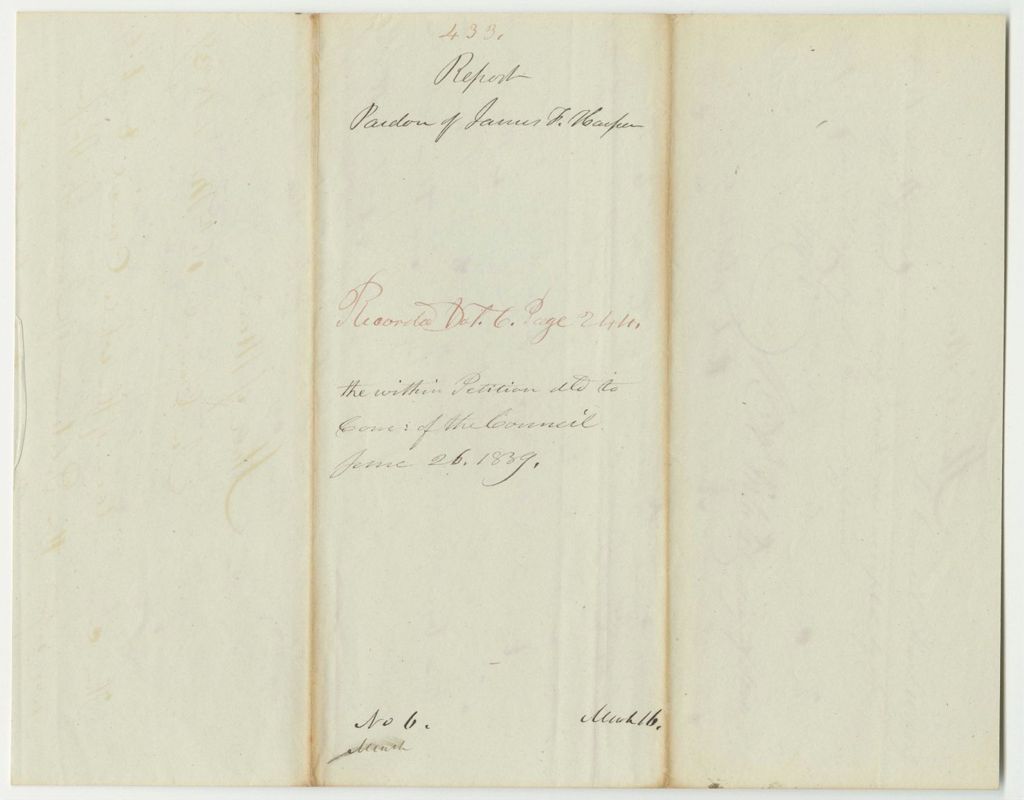 433.
Report
Pardon of James F. Harper
Recorded Vol. 6. Page 244.
the within Petition dld to
Com: of the Council
June 26. 1839.
No 6.
March 16.
March